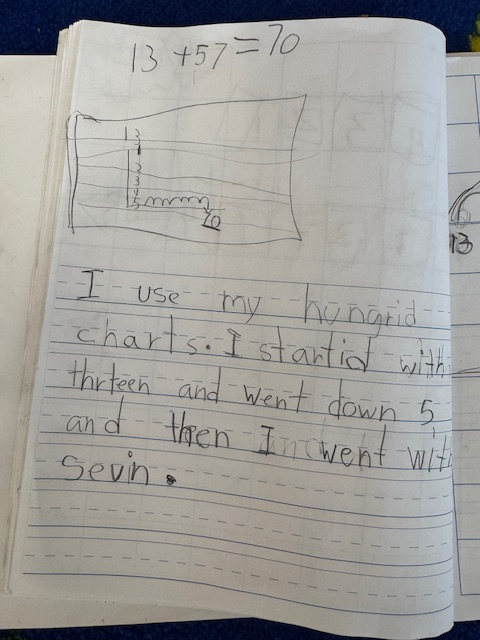 13 + 57 = 70
13
1
2
3
4
5
70
I use my hungrid
charts. I startid with
thrteen and went down 5
and then I went with
sevin.
13